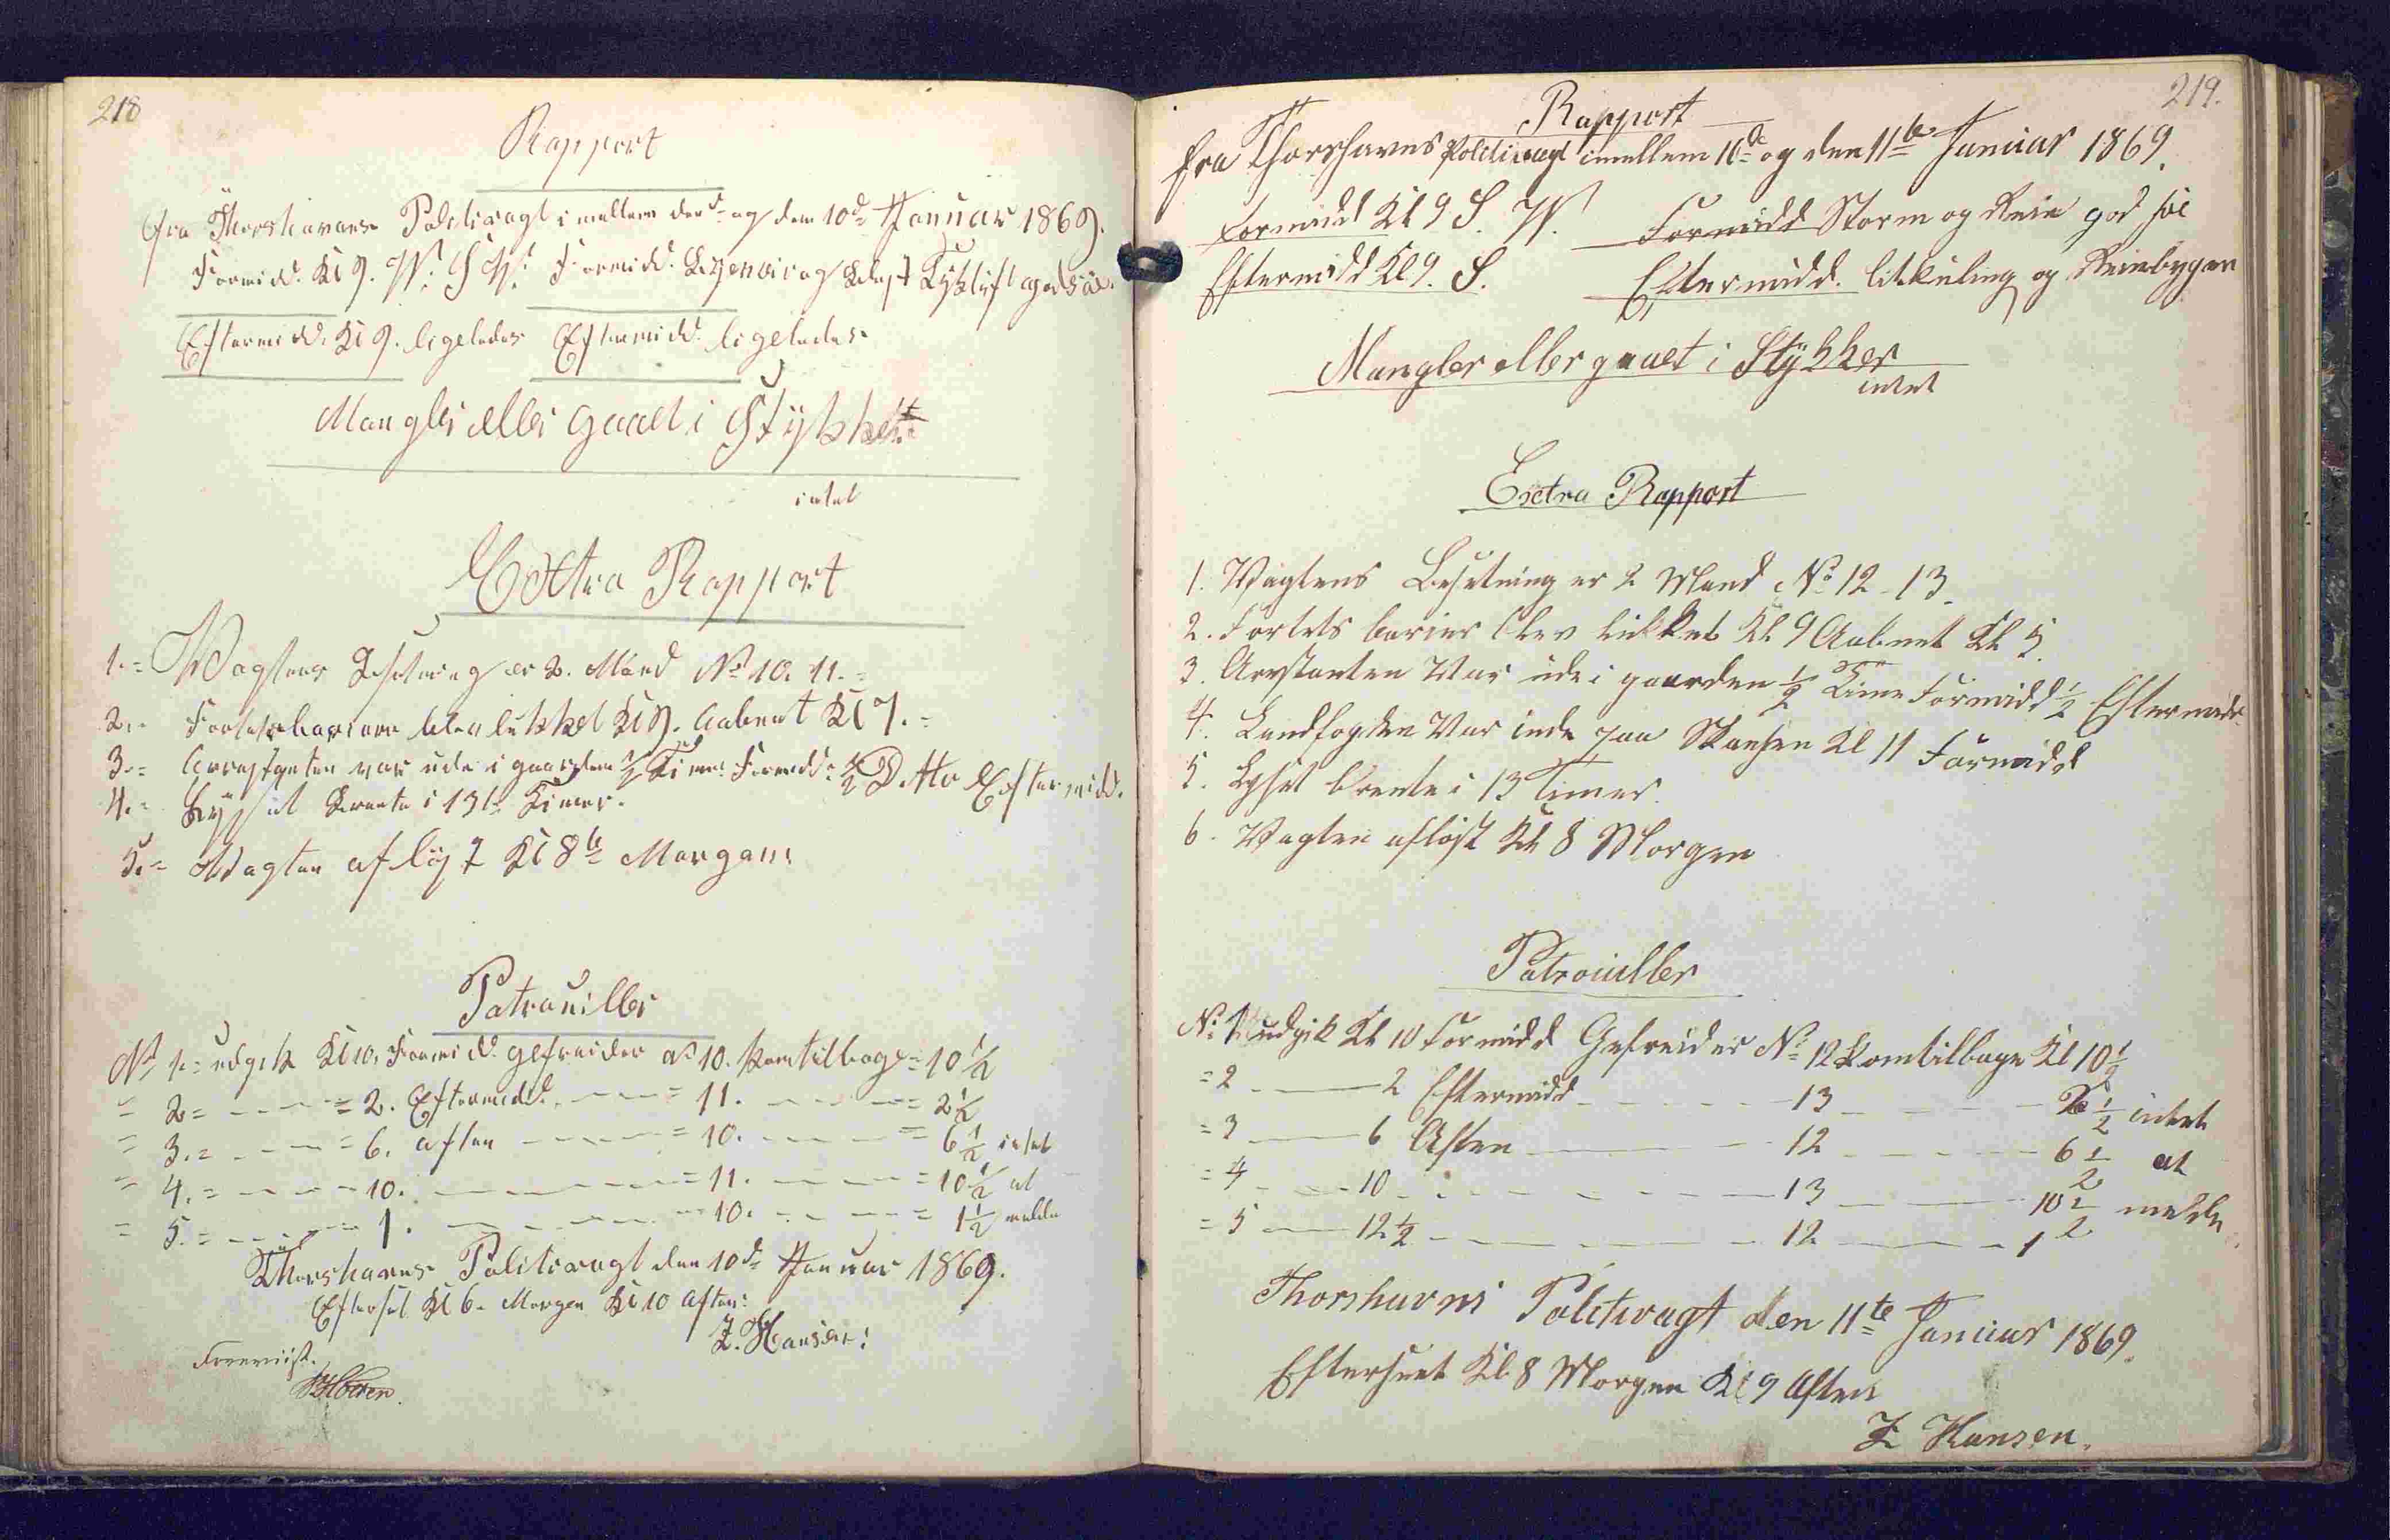 218
Rapport
fra Thorshavns Politivagt imellem den d. og den 10d Januar 1869.
Formidd. Kl 9. W. S W. Formidd. og Tyk luft god söe.
Eftermidd. Kl 9. ligeledes Eftermidd. ligeledes
Mangler eller gaaet i Stykker
intet
Extra Rapport
1. Vagtens Besetning er 2. Mand No 10. 11.
2. Fortets bariere blev lukket Kl 9. Aabent Kl 7.
3. Arrestanten var ude i gaarden 1/2 Time Formidd. 1/2 Ditto Eftermidd.
4. Lyset Brente i 13 Timer.
5. Vagten aflöst Kl 8te Morgen.
Patrouiller
No 1. udgik Kl 10. Formidd. gefreider No 10. kom tilbage 10 1/2
2 2. Eftermidd. 11. 2 1/2
3. 6. Aften 10. 6 1/2 intet
4. 10. 11. 10 1/2 at
5. 1. 10. 1 1/2 melde
Thorshavns Politivagt den 10d Januar 1869.
Efterset Kl 6. Morgen Kl 10 Aften.
Z. Hansen.
Foreviist.
219.
Rapport
fra Thorshavns Politivagt imellem 10de og den 11te Januar 1869.
Formidd Kl 9 S. W. Formidd Storm og Rein god söe
Eftermidd Kl 9. S. Eftermidd. litkuling og Reinbyger
Mangler eller gaaet i Stykker
intet
Exstra Rapport
1. Vagtens Besetning er 2 Mand No 12 - 13.
2. Fortets barier blev lukket Kl 9 Aabnet Kl 5.
3. Arestanten Var ude i gaarden 1/2 Time Formidd 1/2 Eftermidd.
4. Landfogden Var inde paa Skansen Kl 11 Formidd
5. Lyset brente i 13 Timer.
6. Vagten aflöst Kl 8 Morgen
Patrouiller
No 1 udgik Kl 10 Formidd Gefreider No 12 kom tilbage Kl 10 1/2
= 2 2 Eftermidd 13 2 1/2 intet
= 3 6 Aften 12 6 1/2 at
= 4 10 13 10 1/2 melde
= 5 12 1/2 12 1
Thorshavns Politivagt den 11te Januar 1869.
Efterseet Kl 8 Morgen Kl 9 Aften
Z Hansen.